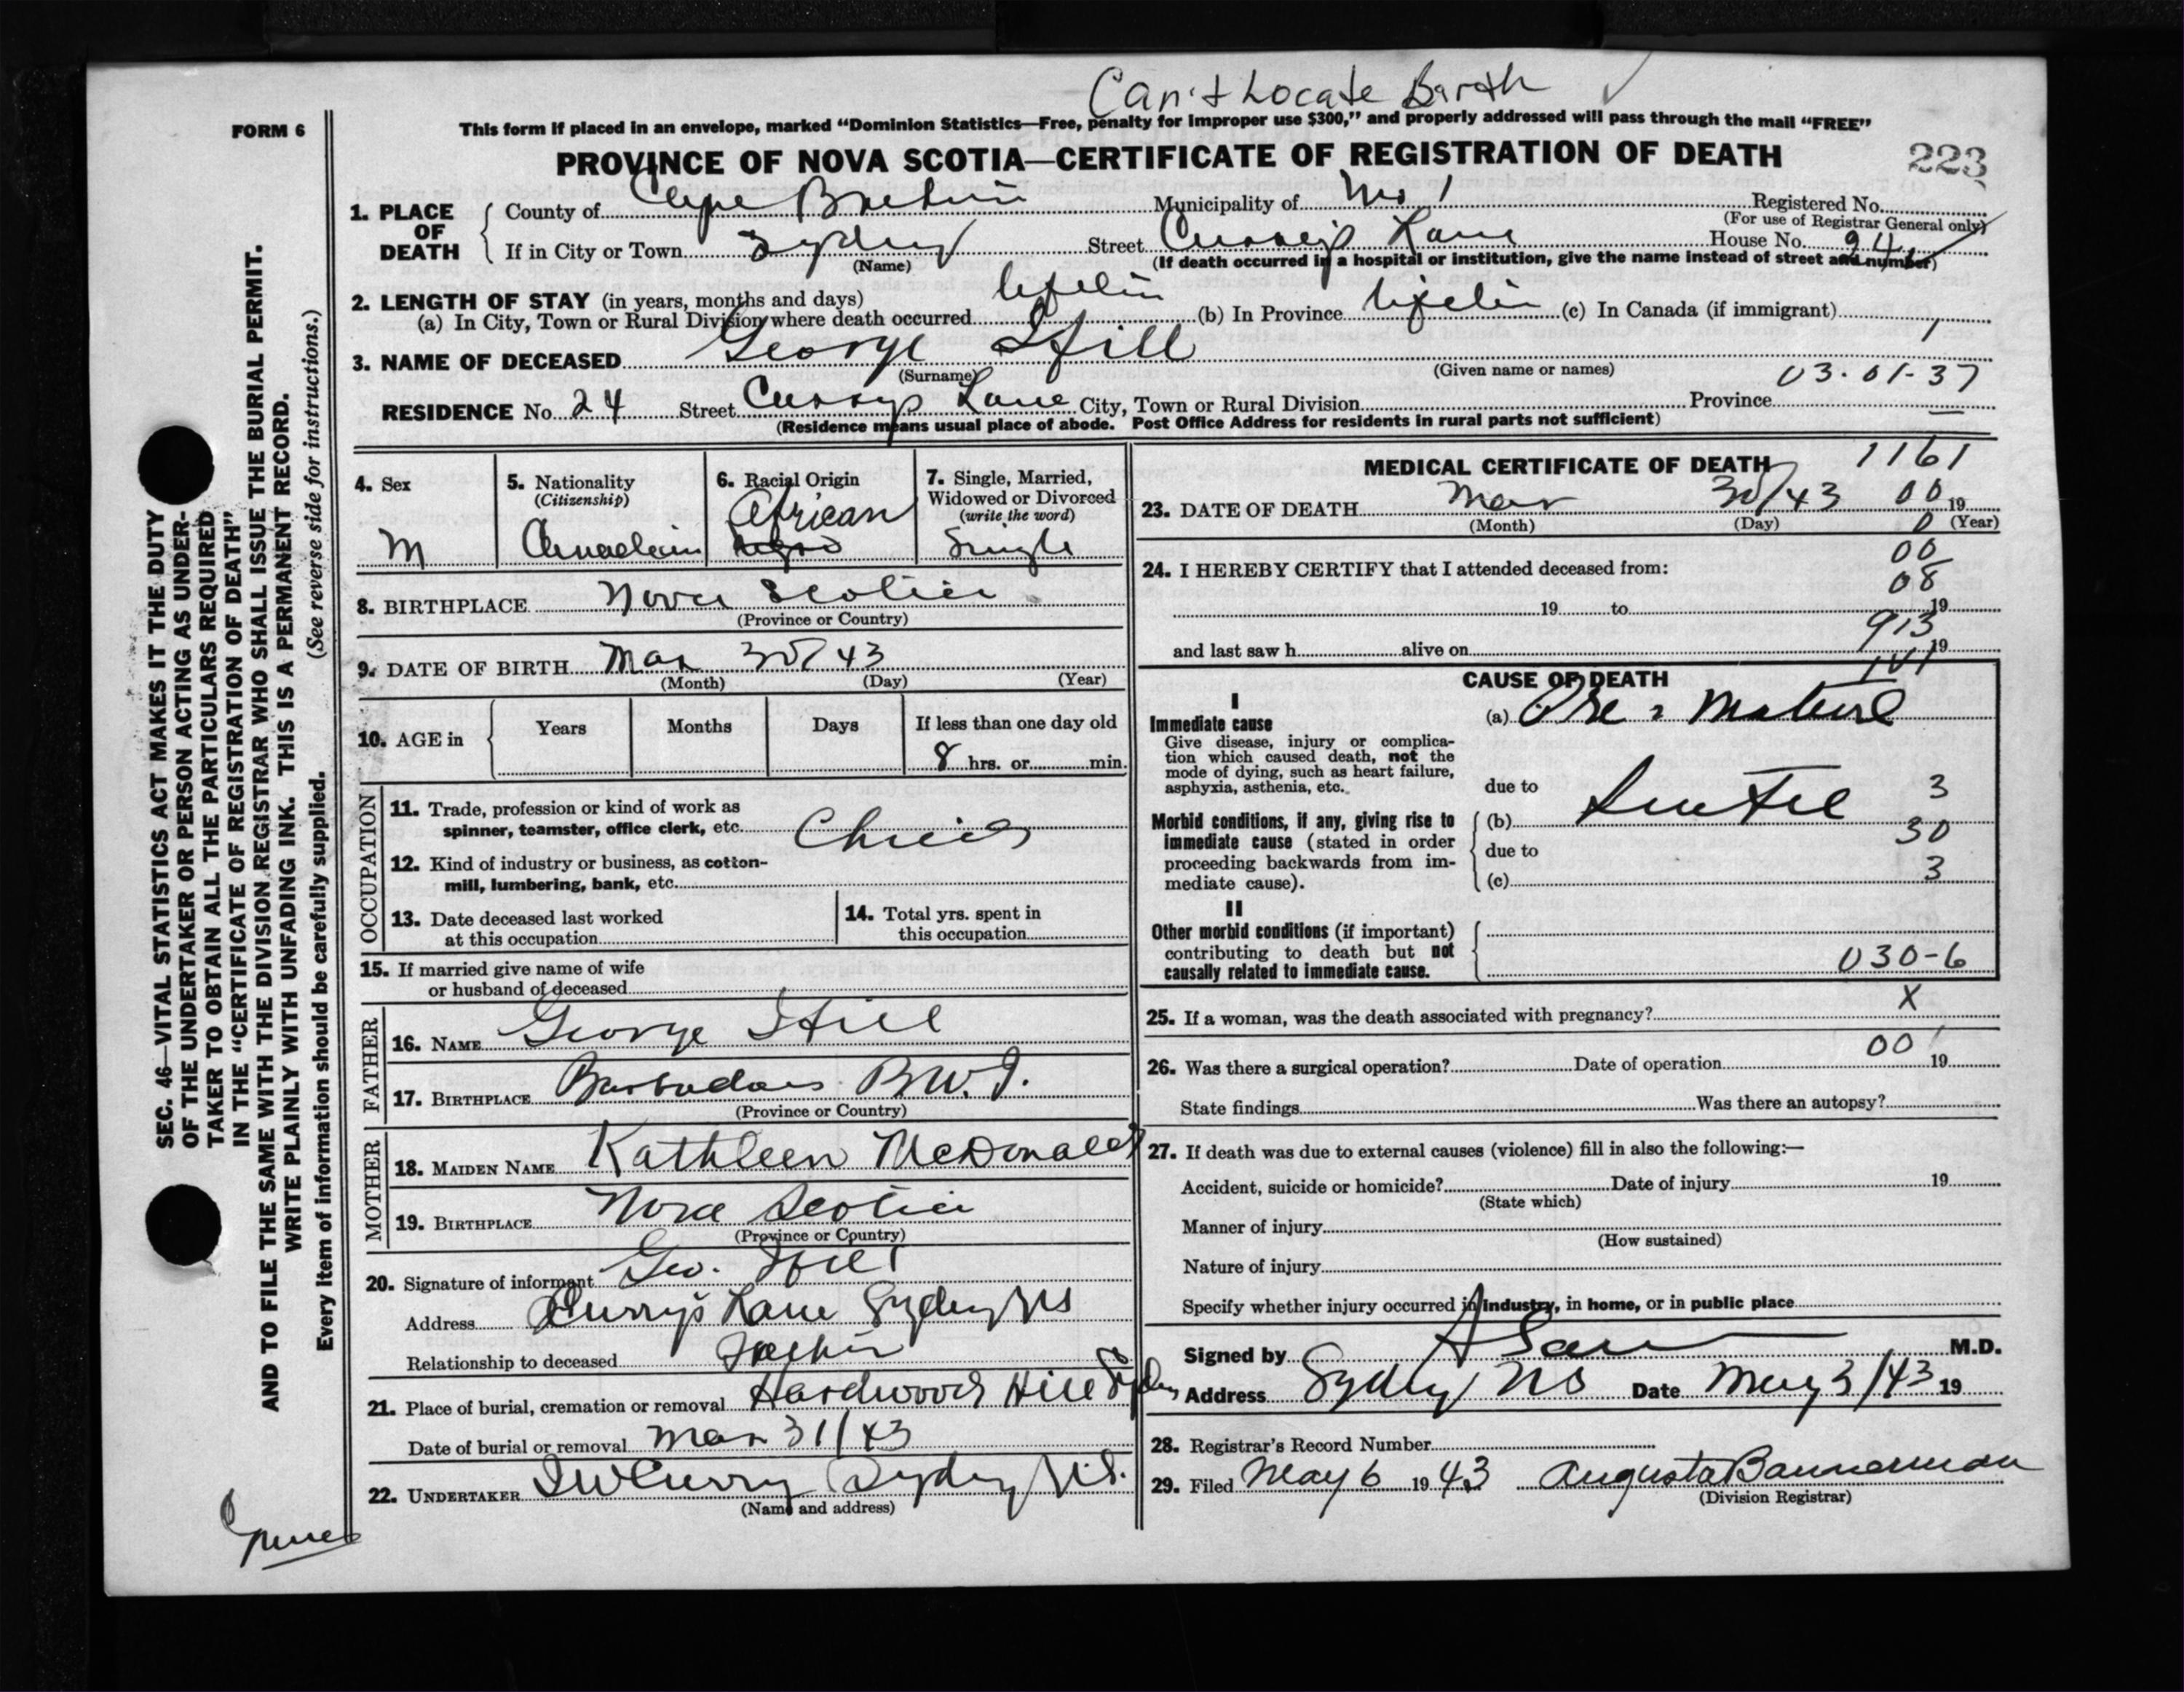 Can't Locate Barth
FORM 6
This form if placed in an envelope, marked "Dominion Statistics—Free, penalty for improper use $300," and properly addressed will pass through the mail "FREE"
PROVINCE OF NOVA SCOTIA—CERTIFICATE OF REGISTRATION OF DEATH
223
1. PLACE OF DEATH
County of Cape Breton Municipality of No 1 Registered No.
(For use of Registrar General only)
If in City or Town Sydney Street Curry's Lane House No. 24
(Name) (If death occurred in a hospital or institution, give the name instead of street and number)
2. LENGTH OF STAY (in years, months and days)
(a) In City, Town or Rural Division where death occurred (b) In Province (c) In Canada (if immigrant)
1
3. NAME OF DECEASED George
(Surname) (Given name or names)
03-01-37
RESIDENCE No. 24 Street Currys Lane City, Town or Rural Division Province
(Residence means usual place of abode. Post Office Address for residents in rural parts not sufficient)
4. Sex
M
5. Nationality
(Citizenship)
Canadian
6. Racial Origin
African
negro
7. Single, Married, Widowed or Divorced
(write the word)
Single
8. BIRTHPLACE Nova Scotia
(Province or Country)
9. DATE OF BIRTH Mar 30/43
(Month) (Day) (Year)
10. AGE in Years Months Days If less than one day old
8 hrs. or min.
OCCUPATION
11. Trade, profession or kind of work as
spinner, teamster, office clerk, etc.
12. Kind of industry or business, as cotton-
mill, lumbering, bank, etc.
13. Date deceased last worked
at this occupation
14. Total yrs. spent in
this occupation
15. If married give name of wife
or husband of deceased
FATHER
16. NAME George
17. BIRTHPLACE Barbados B.W.I.
(Province or Country)
MOTHER
18. MAIDEN NAME Kathleen McDonald
19. BIRTHPLACE Nova Scotia
(Province or Country)
20. Signature of informant Geo.
Address Curry's Lane Sydney NS
Relationship to deceased Father
21. Place of burial, cremation or removal Hardwood Hill Sydney
Date of burial or removal Mar 31/43
22. UNDERTAKER Curry Sydney N.S.
(Name and address)
MEDICAL CERTIFICATE OF DEATH
1161
23. DATE OF DEATH Mar 30/43 00 19
(Month) (Day) 0 (Year)
00
24. I HEREBY CERTIFY that I attended deceased from:
08
19 to 19
913
and last saw h alive on 19
CAUSE OF DEATH
I
Immediate cause
Give disease, injury or complica-
tion which caused death, not the
mode of dying, such as heart failure,
asphyxia, asthenia, etc.
(a) Pre-mature
due to
3
Morbid conditions, if any, giving rise to
immediate cause (stated in order
proceeding backwards from im-
mediate cause).
(b)
30
due to
(c) 3
II
Other morbid conditions (if important)
contributing to death but not
causally related to immediate cause.
030-6
X
25. If a woman, was the death associated with pregnancy?
00
26. Was there a surgical operation? Date of operation 19
State findings Was there an autopsy?
27. If death was due to external causes (violence) fill in also the following:—
Accident, suicide or homicide? Date of injury 19
(State which)
Manner of injury
(How sustained)
Nature of injury
Specify whether injury occurred in Industry, in home, or in public place
Signed by M.D.
Address Sydney NS Date May 3/43 19
28. Registrar's Record Number
29. Filed May 6 1943 Augusta Bannerman
(Division Registrar)
SEC. 46—VITAL STATISTICS ACT MAKES IT THE DUTY
OF THE UNDERTAKER OR PERSON ACTING AS UNDER-
TAKER TO OBTAIN ALL THE PARTICULARS REQUIRED
IN THE "CERTIFICATE OF REGISTRATION OF DEATH"
AND TO FILE THE SAME WITH THE DIVISION REGISTRAR WHO SHALL ISSUE THE BURIAL PERMIT.
WRITE PLAINLY WITH UNFADING INK. THIS IS A PERMANENT RECORD.
Every item of information should be carefully supplied. (See reverse side for instructions.)